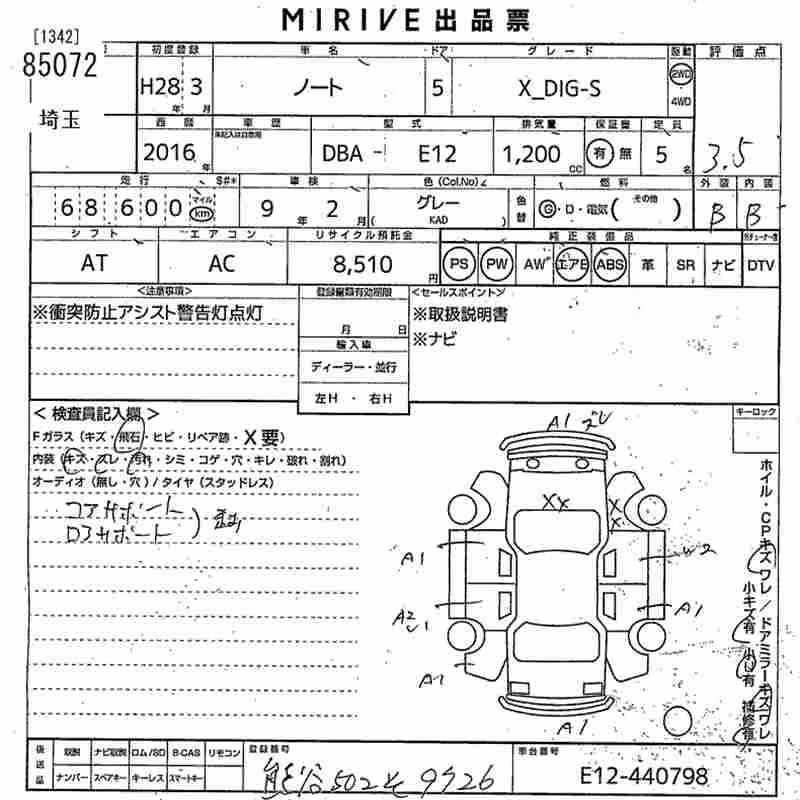 MIRIVE 出品票
[1342]
85072
埼玉
初度登録 車名 ドア グレード 駆動 評価点
H28 3 ノート 5 X_DIG-S 2WD 4WD
年 月
西暦 車歴 型式 排気量 保証書 定員
未記入は自家用
2016 年 DBA - E12 1,200 CC 有 無 5 名 3.5
走行 S#* 車検 色 (Col.No) 燃料 外装 内装
68600 マイル km 9 年 2 月 グレー ( KAD ) 色替 G・D・電気 ( その他 ) B B
シフト エアコン リサイクル預託金 純正装備品
AT AC 8,510 円 PS PW AW エアB ABS 革 SR ナビ DTV
<注意事項> 登録書類有効期限 <セールスポイント>
※衝突防止アシスト警告灯点灯 ※取扱説明書
月 日 ※ナビ
輸入車
ディーラー・並行
左H ・ 右H
< 検査員記入欄 > キーロック
Fガラス (キズ・飛石・ヒビ・リペア跡・X要)
内装 (キズ・スレ・汚れ・シミ・コゲ・穴・キレ・破れ・割れ)
オーディオ (無し・穴) / タイヤ (スタッドレス)
コアサポート
ロアサポート
A1
XX X
X
A1 W2
A2 A1
U1
A1
A1
ホイル・CPキズワレ/ドアミラーキズワレ
小キズ有 小U有 補修有
後送品 取説 ナビ取説 ロム/SD B-CAS リモコン 登録番号 車台番号
ナンバー スペアキー キーレス スマートキー 熊谷502 そ 9726 E12-440798